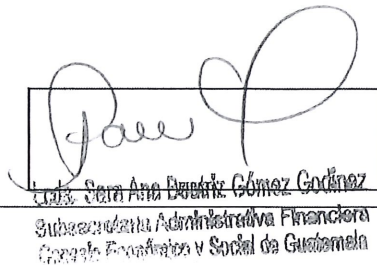 Licda. Sara Ana Beatriz Gómez Godínez
Subsecretaria Administrativa Financiera
Consejo Económico y Social de Guatemala